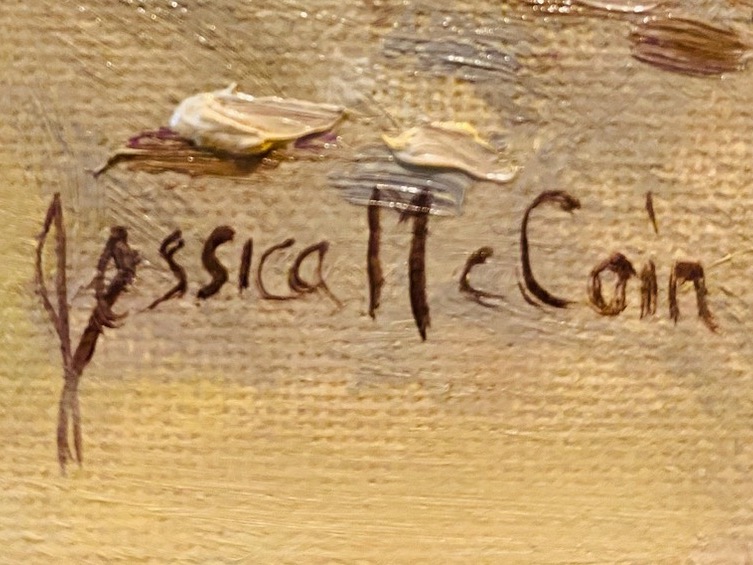 Jessica McCain